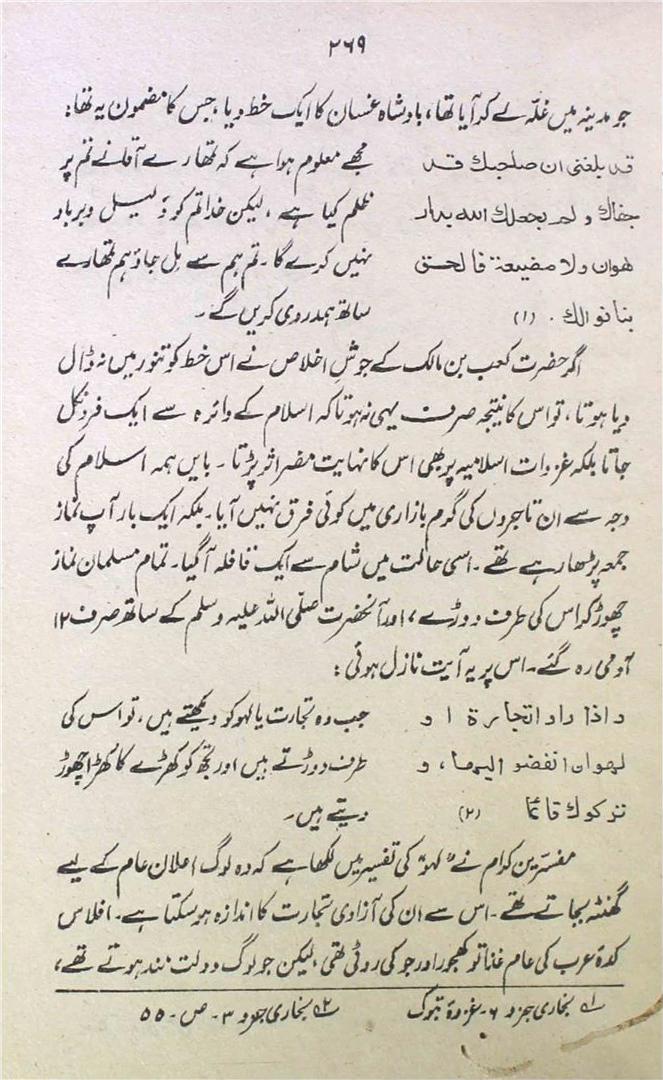 ۲۶۹
جو مدینہ میں غلّہ لے کر آیا تھا، بادشاہ غسان کا ایک خط دیا، جس کا مضمون یہ تھا:
قد بلغنی ان صاحبك قد
جفاك و لم یجعلك اللہ بدار
ھوان ولا مضیعة فالحق
بنا نوالك . (۱)
مجھے معلوم ہوا ہے کہ تمھارے آقا نے تم پر
ظلم کیا ہے ، لیکن خدا تم کو ذلیل و برباد
نہیں کرے گا ۔ تم ہم سے مل جاؤ ہم تمھارے
ساتھ ہمدردی کریں گے ۔
اگر حضرت کعب بن مالک کے جوشِ اخلاص نے اس خط کو تنور میں نہ ڈال
دیا ہوتا ، تو اس کا نتیجہ صرف یہی نہ ہوتا کہ اسلام کے دائرہ سے ایک فرد نکل
جاتا بلکہ غزوات اسلامیہ پر بھی اس کا نہایت مضر اثر پڑتا ۔ بایں ہمہ اسلام کی
وجہ سے ان تاجروں کی گرم بازاری میں کوئی فرق نہیں آیا ۔ بلکہ ایک بار آپ نماز
جمعہ پڑھا رہے تھے ۔ اسی حالت میں شام سے ایک قافلہ آگیا ۔ تمام مسلمان نماز
چھوڑ کر اس کی طرف دوڑے ، اور آنحضرت صلّی اللہ علیہ وسلم کے ساتھ صرف ۱۲
آدمی رہ گئے ۔ اس پر یہ آیت نازل ہوئی :
و اذا راوا تجارة ا و
لھوان انفضوا الیھا ، و
ترکوك قائما (۲)
جب وہ تجارت یا لہو کو دیکھتے ہیں ، تو اس کی
طرف دوڑتے ہیں اور تجھ کو کھڑے کا کھڑا چھوڑ
دیتے ہیں ۔
مفسّرین کرام نے "لہو" کی تفسیر میں لکھا ہے کہ وہ لوگ اعلان عام کے لیے
گھنٹہ بجاتے تھے ۔ اس سے ان کی آزادی تجارت کا اندازہ ہوسکتا ہے ۔ افلاس
کدۂ عرب کی عام غذا تو کھجور اور جو کی روٹی تھی ، لیکن جو لوگ دولت مند ہوتے تھے ،
۱؎ بخاری جزو ۶ - غزوۂ تبوک
۲؎ بخاری جزو ۳ - ص - ۵۵